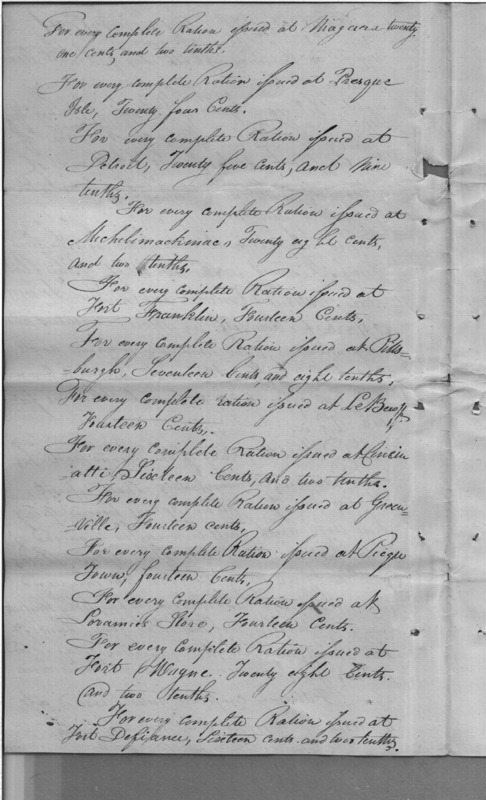 For every complete Ration issued at Niagara twenty
one cents and two tenths.
For every complete Ration issued at Presque
Isle, Twenty four Cents.
For every complete Ration issued at
Detroit, Twenty five Cents, and Nine
tenths.
For every complete Ration issued at
Michelimackinac, Twenty eight cents,
and two tenths.
For every complete Ration issued at
Fort Franklin, Fourteen Cents,
For every Complete Ration issued at Pitts=
=burgh, Seventeen Cents, and eight tenths,
For every complete ration issued at Le Beuff
Fourteen Cents,
For every complete Ration issued at Cincin
atti, Sixteen Cents, and two tenths.
For every complete Ration issued at Green=
=ville, Fourteen cents,
For every complete Ration issued at Picque
Town, fourteen Cents,
For every Complete Ration issued at
Loramies Store, Fourteen Cents.
For every Complete Ration issued at
Fort Wayne Twenty eight Cents.
and two tenths.
For every complete Ration issued at
Fort Defiance, Sixteen cents and two tenths.